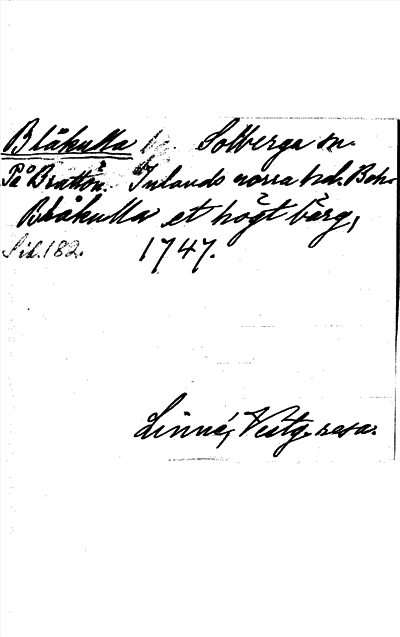 Blåkulla Solberga sn.
På Brattön. Inlands norra hd. Boh.
Blåkulla et högt bärg,
Sid. 182. 1747.
Linné, Vestg. resa.